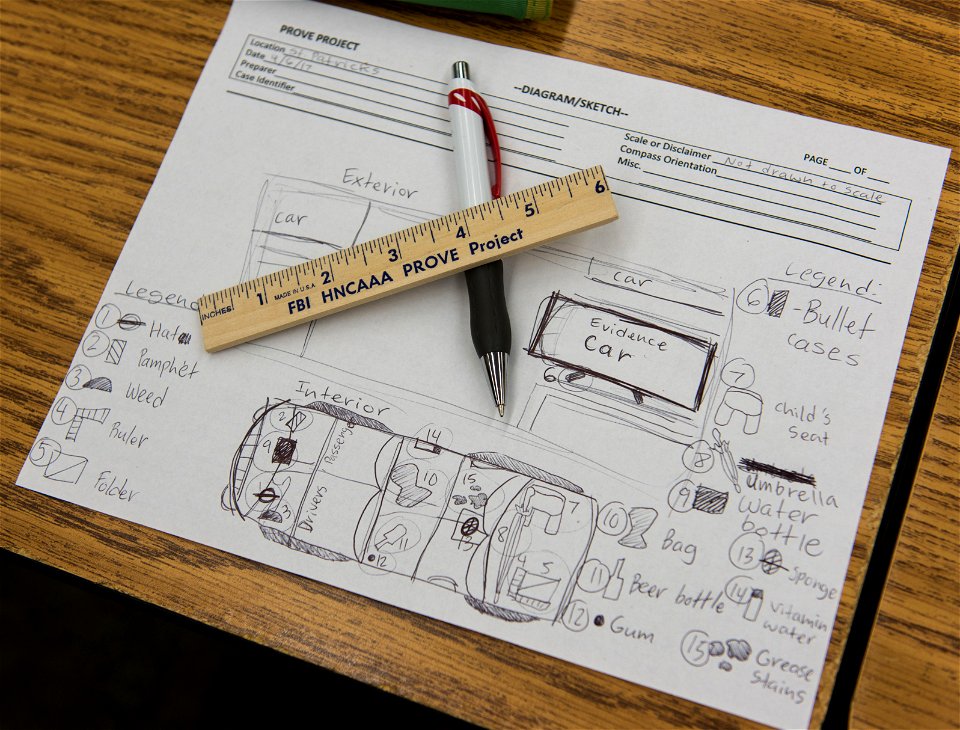 PROVE PROJECT
Location St Patricks
Date 4/6/17
Preparer
Case Identifier
--DIAGRAM/SKETCH--
PAGE ___ OF ___
Scale or Disclaimer Not drawn to scale
Compass Orientation
Misc.
Exterior
car
INCHES 1 2 3 4 5 6
MADE IN U.S.A
FBI HNCAAA PROVE Project
car
Evidence
Car
6
Legend:
1 Hat
2 Pamphet
3 Weed
4 Ruler
5 Folder
Legend:
6 -Bullet
cases
7 child's
seat
8 Umbrella
9 Water
bottle
10 Bag
11 Beer bottle
12 Gum
13 Sponge
14 Vitamin
water
15 Grease
stains
Interior
2
9
Passenger
Drivers
1
3
14
10
15
12
13
7
8
5